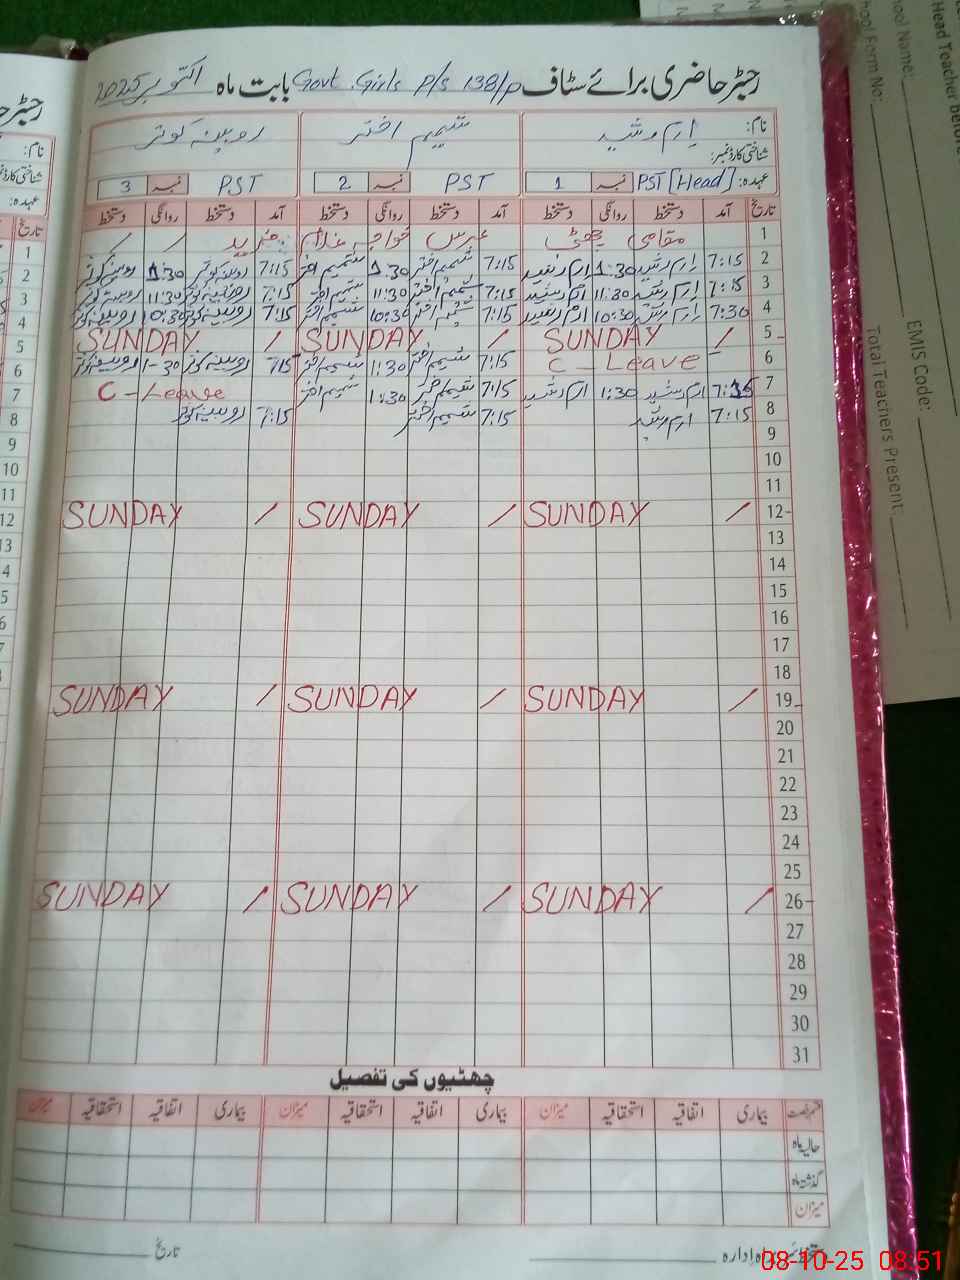 رجسٹر حاضری برائے سٹاف Govt. Girls P/S 138/P بابت ماہ اکتوبر 2025
نام: ارم رشید شمیم اختر روبینہ کوثر
شناختی کارڈ نمبر:
عہدہ: PST [Head] نمبر 1 PST نمبر 2 PST نمبر 3
تاریخ آمد دستخط روانگی دستخط آمد دستخط روانگی دستخط آمد دستخط روانگی دستخط
1 مقامی چھٹی عرس خواجہ غلام فرید
2 7:15 ارم رشید 1:30 ارم رشید 7:15 شمیم اختر 1:30 شمیم اختر 7:15 روبینہ کوثر 1:30 روبینہ کوثر
3 7:15 ارم رشید 11:30 ارم رشید 7:15 شمیم اختر 11:30 شمیم اختر 7:15 روبینہ کوثر 11:30 روبینہ کوثر
4 7:30 ارم رشید 10:30 ارم رشید 7:15 شمیم اختر 10:30 شمیم اختر 7:15 روبینہ کوثر 10:30 روبینہ کوثر
5 / SUNDAY / SUNDAY / SUNDAY
6 C - Leave 7:15 شمیم اختر 11:30 شمیم اختر 7:15 روبینہ کوثر 1-30 روبینہ کوثر
7 7:15 ارم رشید 1:30 ارم رشید 7:15 شمیم اختر 1:30 شمیم اختر C - Leave
8 7:15 ارم رشید 7:15 شمیم اختر 7:15 روبینہ کوثر
9
10
11
12 / SUNDAY / SUNDAY / SUNDAY
13
14
15
16
17
18
19 / SUNDAY / SUNDAY / SUNDAY
20
21
22
23
24
25
26 / SUNDAY / SUNDAY / SUNDAY
27
28
29
30
31
چھٹیوں کی تفصیل
قسم رخصت بیماری اتفاقیہ استحقاقیہ میزان بیماری اتفاقیہ استحقاقیہ میزان بیماری اتفاقیہ استحقاقیہ میزان
حالیہ ماہ
گذشتہ ماہ
میزان
ادارہ تاریخ
08-10-25 08:51
Head Teacher
School Name:
EMIS Code:
Form No:
Total Teachers Present: